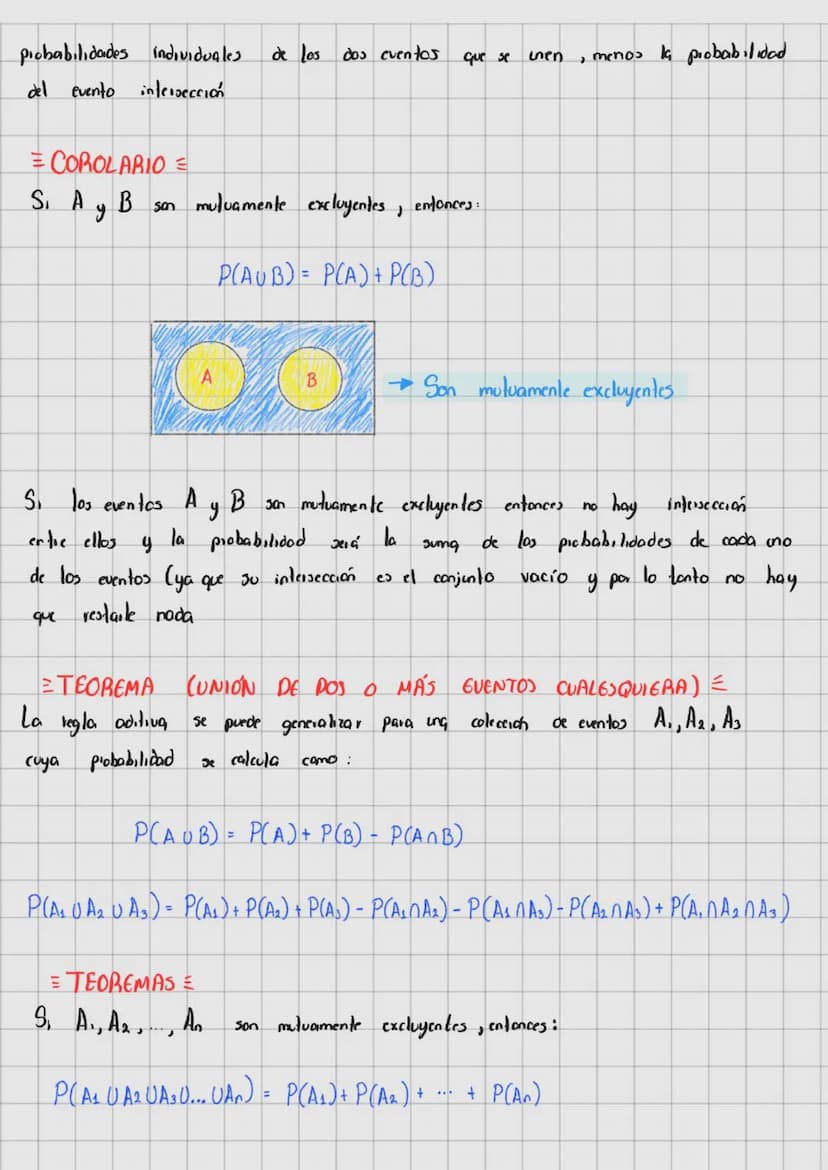 probabilidades individuales de los dos eventos que se unen, menos la probabilidad
del evento intersección
≡ COROLARIO ≡
Si A y B son mutuamente excluyentes, entonces:
P(A∪B) = P(A) + P(B)
A B → Son mutuamente excluyentes
Si los eventos A y B son mutuamente excluyentes entonces no hay intersección
entre ellos y la probabilidad será la suma de las probabilidades de cada uno
de los eventos (ya que su intersección es el conjunto vacío y por lo tanto no hay
que restarle nada
≡ TEOREMA (UNIÓN DE DOS O MÁS EVENTOS CUALESQUIERA) ≡
La regla aditiva se puede generalizar para una colección de eventos A₁, A₂, A₃
cuya probabilidad se calcula como:
P(A∪B) = P(A) + P(B) - P(A∩B)
P(A₁∪A₂∪A₃) = P(A₁) + P(A₂) + P(A₃) - P(A₁∩A₂) - P(A₁∩A₃) - P(A₂∩A₃) + P(A₁∩A₂∩A₃)
≡ TEOREMAS ≡
Si A₁, A₂, ..., An son mutuamente excluyentes, entonces:
P(A₁∪A₂∪A₃∪...∪An) = P(A₁) + P(A₂) + ... + P(An)